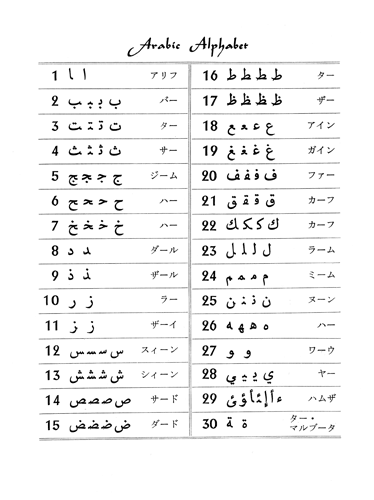 Arabic Alphabet
1 ا ـا アリフ
2 ب ـبـبـب バー
3 ت ـتـتـت ター
4 ث ـثـثـث サー
5 ج ججج ジーム
6 ح ححح ハー
7 خ خخخ ハー
8 د ـد ダール
9 ذ ـذ ザール
10 ر ـر ラー
11 ز ـز ザーイ
12 س سسس スィーン
13 ش ششش シィーン
14 ص صصص サード
15 ض ضضض ダード
16 ط ططط ター
17 ظ ظظظ ザー
18 ع ععع アイン
19 غ غغغ ガイン
20 ف ففف ファー
21 ق ققق カーフ
22 ك ككك カーフ
23 ل للل ラーム
24 م ممم ミーム
25 ن ننن ヌーン
26 ه ههه ハー
27 و و ワーウ
28 ي ييي ヤー
29 ء أ إ ئـ أ ؤ ئ ハムザ
30 ة ـة ター・マルブータ